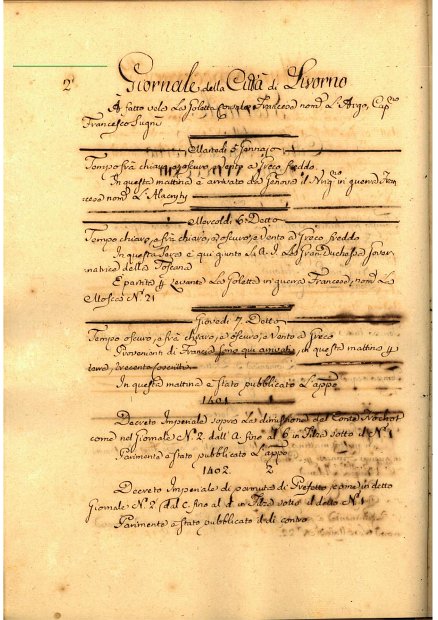 2
Giornale della Città di Livorno
A fatto vela La Goletta Francese nom.ᵃ L'Argo, Cap.ⁿᵒ
Francesco
Martedi 5 Gennajo
Tempo frà chiaro, e oscuro Vento a Greco freddo
In questa mattina è arrivato da Genova il in guerra Fran
cese nom.º L'Alacrity
Mercoldi 6. Detto
Tempo chiaro, e frà chiaro, e oscuro, e Vento a Greco freddo
In questa sera è qui giunto S. A. I. La Gran Duchessa Gover
natrice della Toscana
E partita Levante La Goletta in guerra Francese, nom.ᵃ La
Mosca N.º 21
Giovedi 7. Detto
Tempo oscuro, e frà chiaro, e oscuro, e Vento a Greco
Provenienti di Francia sono qui arrivati, in questa mattina
terra,
In questa mattina è stato pubblicato L'app.º
1401
Decreto Imperiale sopra La dimissione del Conte
come nel Giornale N.º 2. dall' A. fino al 6 in Filza sotto il N.º 1
Parimente è stato pubblicato L'app.º
1402 2
Decreto Imperiale di permuta di Prefetto, come in detto
Giornale N.º 2 dal C. fino al d. in Filza sotto il detto N.º 1
Parimente è stato pubblicato il di contro